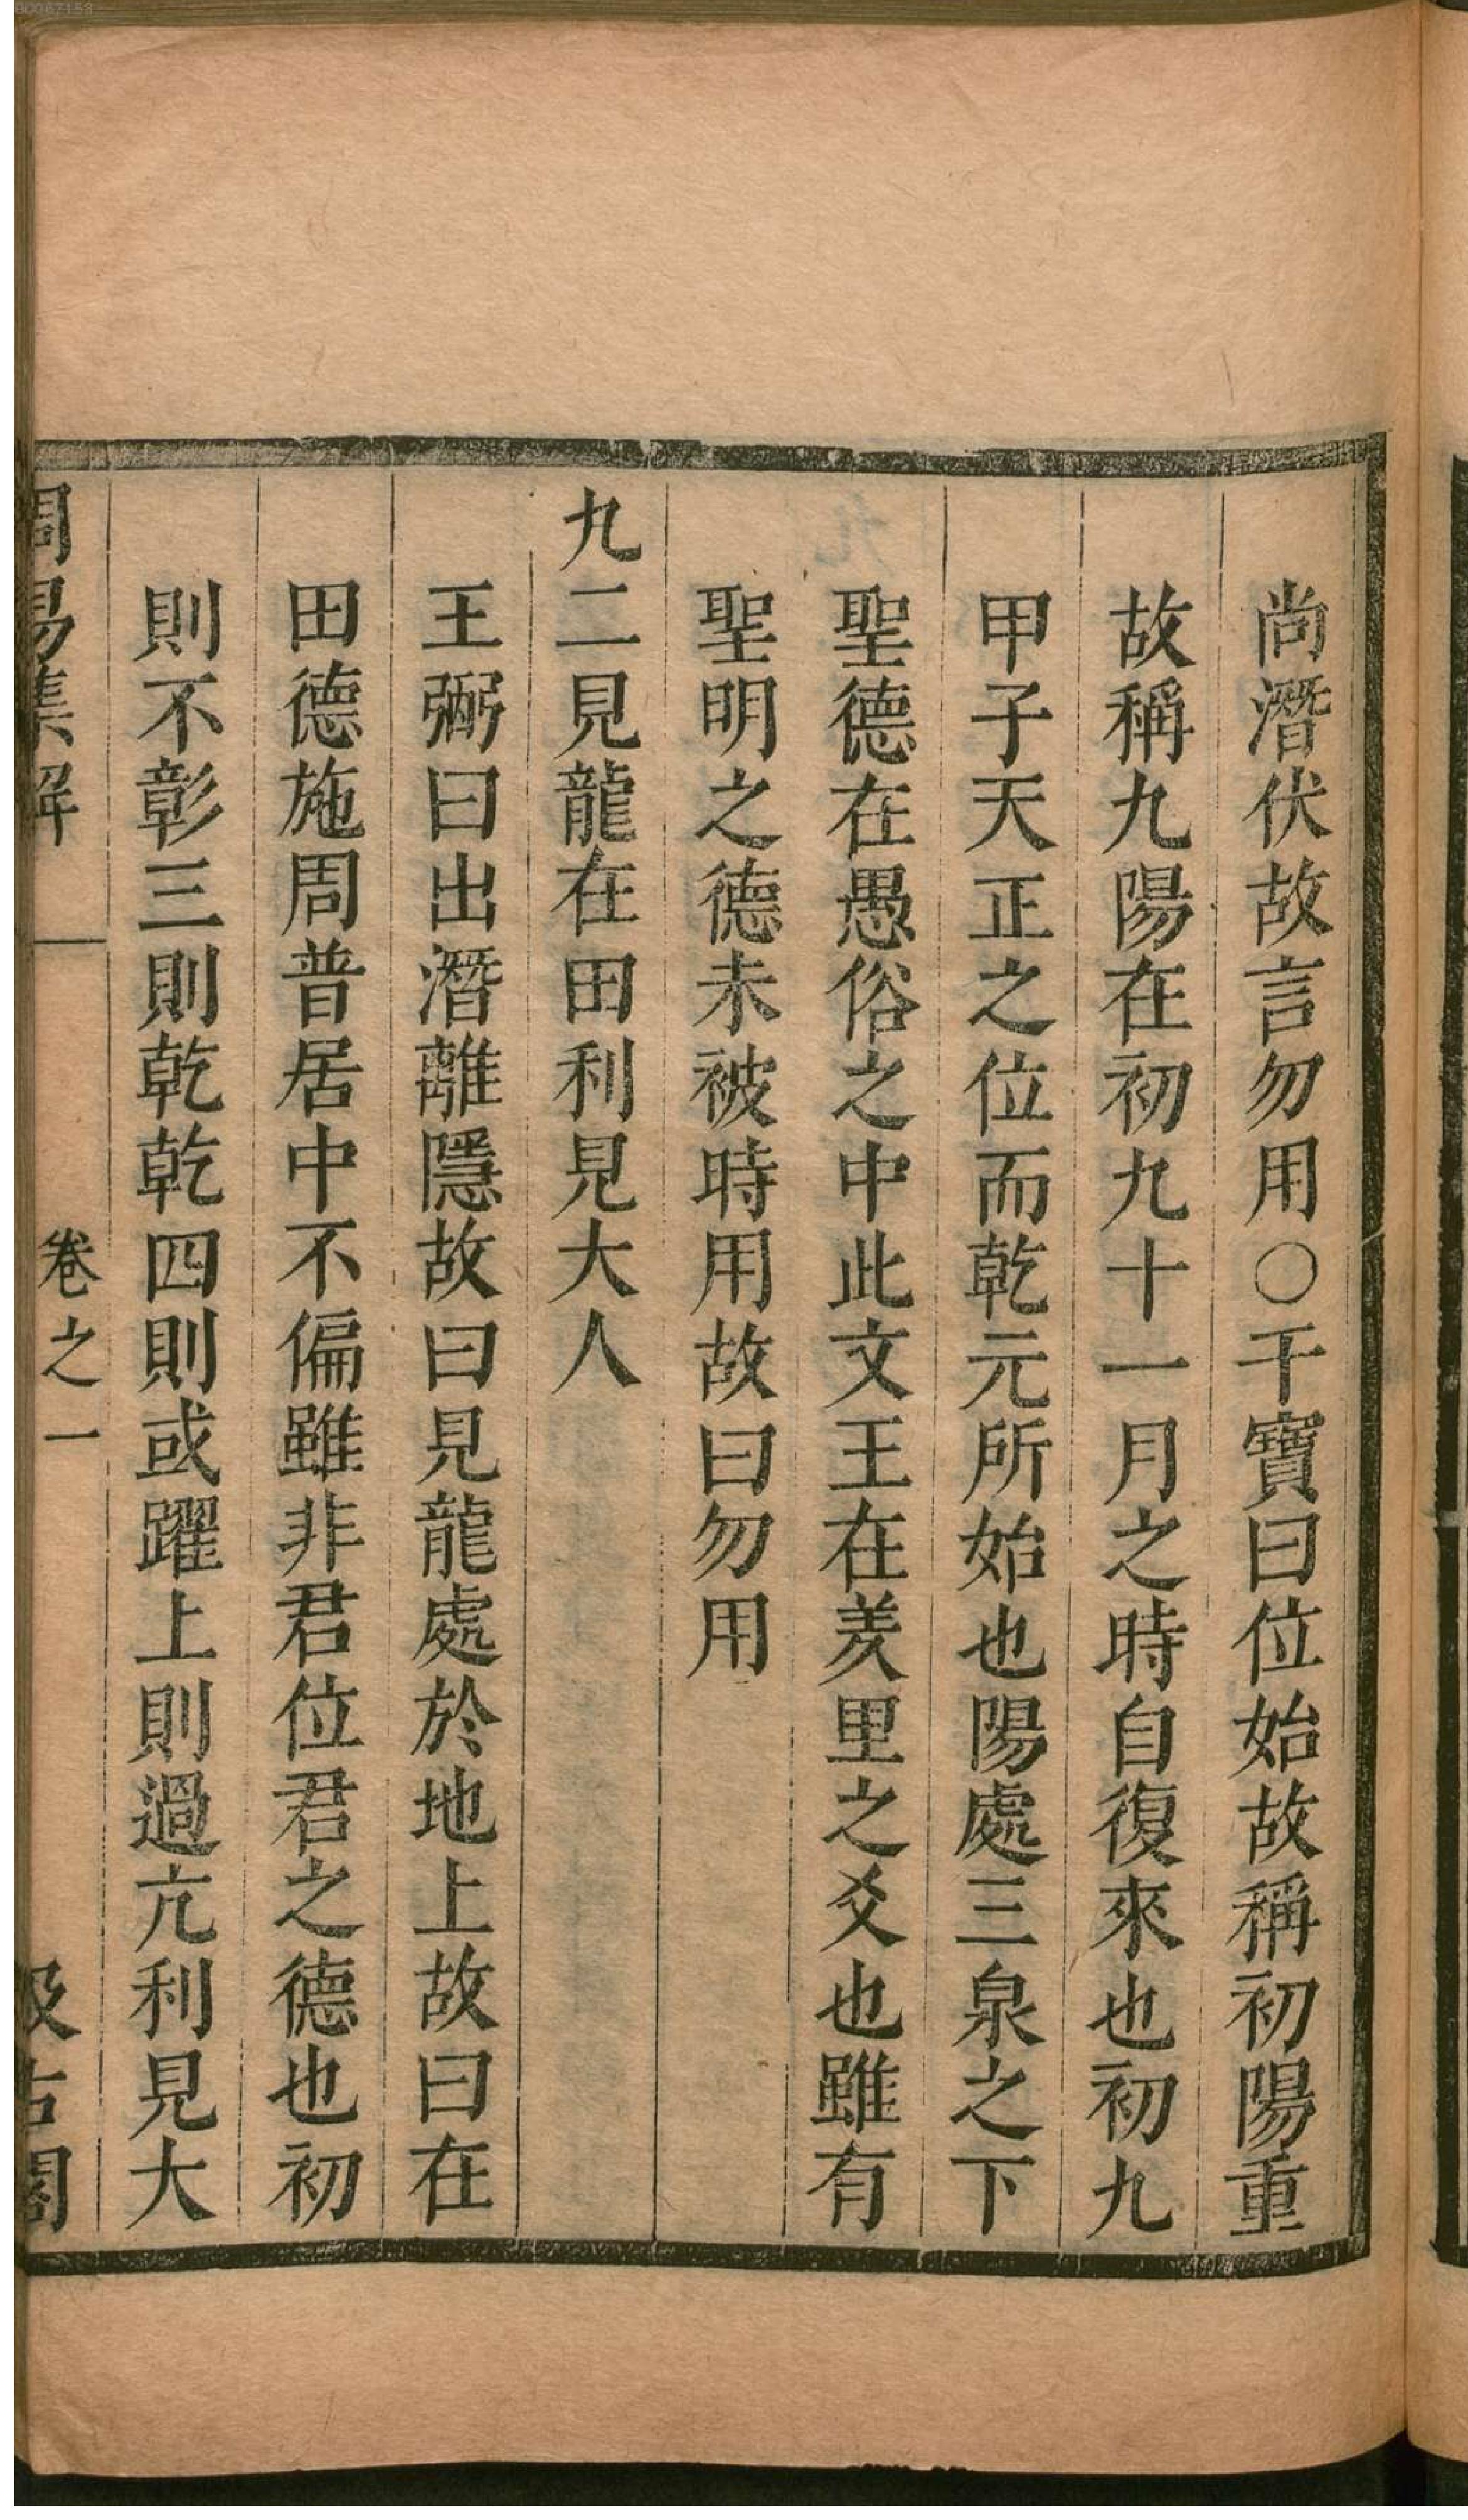 尚潛伏故言勿用○干寶曰位始故稱初陽重
故稱九陽在初九十一月之時自復來也初九
甲子天正之位而乾元所始也陽處三泉之下
聖德在愚俗之中此文王在羑里之爻也雖有
聖明之德未被時用故曰勿用
九二見龍在田利見大人
王弼曰出潛離隱故曰見龍處於地上故曰在
田德施周普居中不偏雖非君位君之德也初
則不彰三則乾乾四則或躍上則過亢利見大
周易集解 卷之一 汲古閣